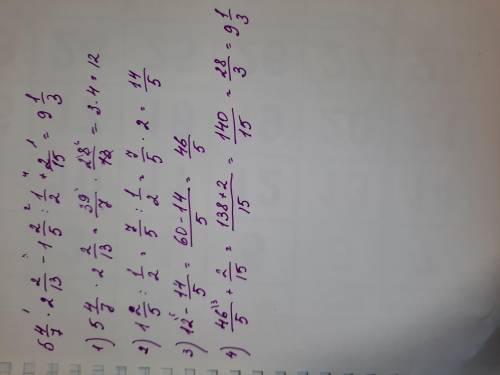 5 4/7 · 2 2/13 - 1 2/5 : 1/2 + 2/15 = 9 1/3
1) 5 4/7 · 2 2/13 = 39/7 · 28/13 = 3 · 4 = 12
2) 1 2/5 : 1/2 = 7/5 : 1/2 = 7/5 · 2 = 14/5
3) 12 - 14/5 = 60-14/5 = 46/5
4) 46/5 + 2/15 = 138+2/15 = 140/15 = 28/3 = 9 1/3